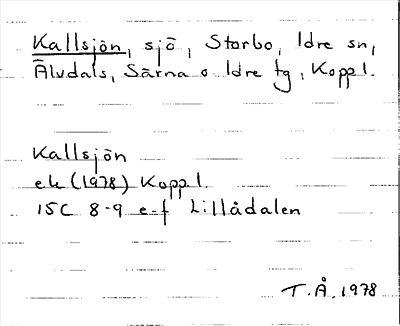 Kallsjön, sjö, Storbo, Idre sn,
Älvdals, Särna o Idre tg, Koppl.
Kallsjön
ek (1978) Koppl.
15C 8-9 e-f Lillådalen
T.Å. 1978